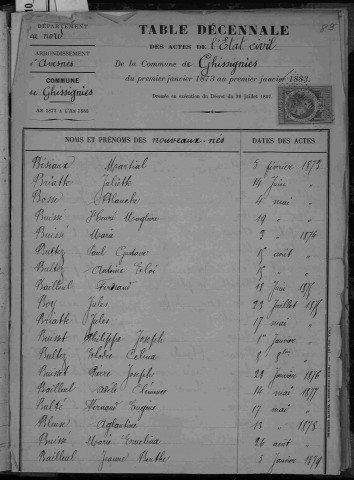 DÉPARTEMENT
du nord
ARRONDISSEMENT
d'Avesnes
COMMUNE
de Ghissignies
AN 1873 à L'AN 1883
TABLE DÉCENNALE
DES ACTES DE l'État civil
De la Commune de Ghissignies
du premier janvier 1873 au premier janvier 1883.
Dressée en exécution du Décret du 20 juillet 1807.
NOMS ET PRÉNOMS DES nouveaux-nés DATES DES ACTES
Martial 5 février 1873
Briatte Juliette 14 Juin "
Bosse Blanche 4 mai "
Buisse Henri 19 "
Buisse Marie 3 " 1874
Bultez Paul Gustave 15 août "
Bultez Antoine Eloi 15 "
Bailleul Fernand 18 Juin 1875
Boy Jules 23 Juillet 1875
Briatte Jules 17 mai "
Buisset Philippe Joseph 1er Janvier "
Bultez Elodie Celina 8 8bre "
Buisset Pierre Joseph 28 janvier 1876
Bailleul 14 mai 1877
Fernand 17 mai "
Bleuse Aglantine 13 " 1878
Buisse Marie 26 août "
Bailleul Jeanne Berthe 5 Janvier 1879